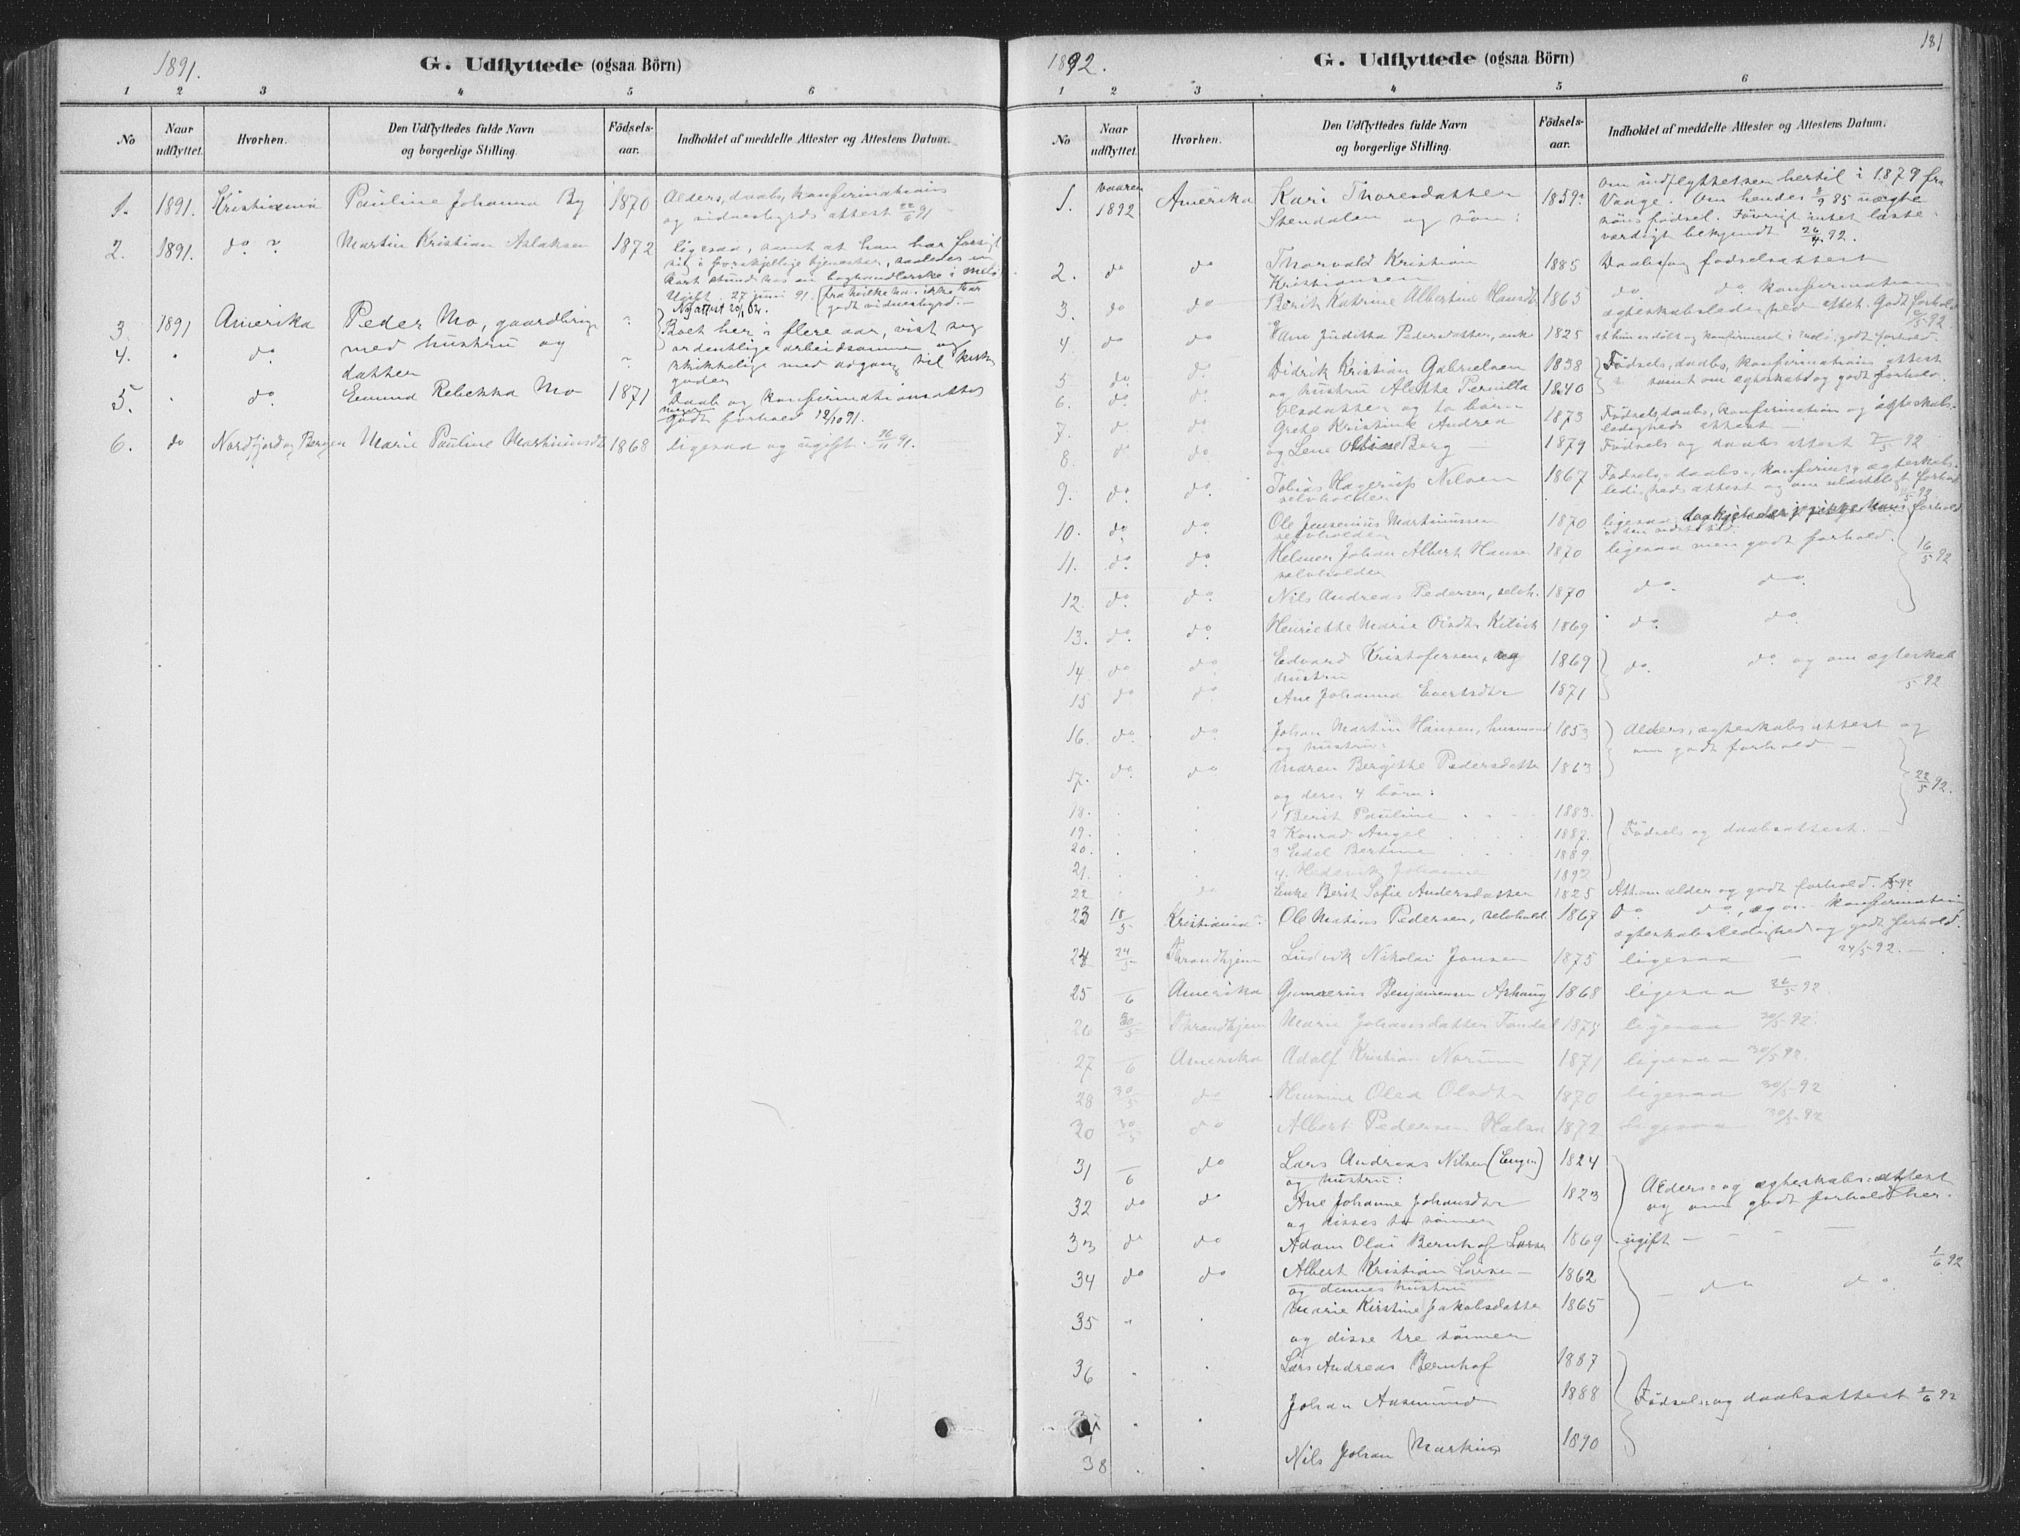 1891.
G. Udflyttede (ogsaa Börn)
1 2 3 4 5 6
No
Naar udflyttet.
Hvorhen.
Den Udflyttedes fulde Navn og borgerlige Stilling.
Födsels-aar.
Indholdet af meddelte Attester og Attestens Datum.
1. 1891. Kristiania Pauline Johanna By 1870 Alders, daabs, konfirmations
og vidnesbyrds attest 22/6 91 -
2. 1891. do Martin Kristian Aslaksen 1872 ligesaa, samt at han har forsøgt
sig i forskjellige tjenester, saaledes en
kort stund hos en boghandlerske i
Ugift 27 juni 91.
godt vidnesbyrd. -
3. 1891 Amerika Peder Mo, gaardbruger Boet her i flere aar, vist sig
4. " do. med hustru og ordentlige arbeidsomme og
datter skikkelige med adgang til
5. " do. Emund Rebekka Mo 1871 Daab og konfirmationsattest
godt forhold 12/10 91.
6. do Nordfjord og Bergen Marie Pauline Martinusdt 1868 ligesaa og ugift. 26/11 91.
1892.
G. Udflyttede (ogsaa Börn)
181
1 2 3 4 5 6
No
Naar udflyttet.
Hvorhen.
Den Udflyttedes fulde Navn og borgerlige Stilling.
Födsels-aar.
Indholdet af meddelte Attester og Attestens Datum.
1. vaaren 1892 Amerika Kari Thoresdatter 1859 om indflyttelsen hertil i 1879 fra
Stendalen og søn: Vaage. Om hendes 85 uægte
søns fødsel. Forøvrigt intet laste-
værdigt bekjendt 26/4 92.
2. do do Thorvald Kristian 1885 Daabs og fødselsattest
Kristiansen
3. do do Berit Katrine Albertine Hansdt 1865 do do konfirmation
ægteskabsledighed attest. Godt forhold
4 do do Judithe Pedersdatter, enke 1825 at hun er døbt og konfirmeret godt forhold.
5 do do Didrik Kristian Gabrielsen 1838 Fødsels, daabs, konfirmations attest
6. do do. og hustru Alette Pernilla 1840 samt om ægteskabs og godt forhold.
7. do do. Olsdatter og to børn
Grete Kristine Andrea 1873 Fødsels, daabs, konfirmation og ægteskabs-
ledigheds attest -
8. do og Lene Berg - 1879 Fødsels og daabs attest
9. do. do. Tobias Hagerup Nilsen 1867 Fødsels, daabs, konfirm. ægteskabs-
selvholden ledigheds attest og om forhold
10. do. do. Ole Jensenius Martinussen 1870 ligesaa
selvholden
11. do. do. Helmer Johan Albert Hansen 1870 ligesaa men godt forhold. 16/5 92
selvholden
12. do. do. Nils Andreas Pedersen, selvh. 1870 do. do.
13. do. do. Henriette Marie Olsdtr 1869 do. do.
14. do do Edvard Kristofersen, og 1869 do. do. og om ægteskab
hustru
15 do do. Ane Johanna Evertsdtr 1871 /5 92
16. do. do. Johan Martin Hansen, husmand 1853 Alders, ægteskabs attest og
og hustru: om godt forhold -
17. do. do Maren Bergitte Pedersdatter 1863 22/5 92.
og deres 4 børn:
18. . . 1 Berit Pauline 1883.
19. . . 2 Konrad Angel 1887. Fødsels og daabsattest. -
20. . . 3 Edel Bertine 1889.
21. . . 4. Hedevik Johanne 1892
22 . do Enke Berit Sofie Andersdatter 1825 Att. om alder og godt forhold.
23 18/5 Kristiania Ole Matias Pedersen, selvhold. 1867 do do, og om konfirmation,
ægteskabsledighed og godt forhold.
24 24/5 Throndhjem Ludvik Nikolai Jonsen 1875 ligesaa - 24/5 92. -
25 /6 Amerika Gunnerus Benjaminsen Ashaug 1868 ligesaa 26/5 92
26 30/5 Throndhjem Marie Johansdatter 1875 ligesaa 30/5 92.
27 /6 Amerika Adolf Kristian Norum 1871 ligesaa 30/5 92.
28 30/5 do Olea Olsdtr 1870 ligesaa 30/5 92
30 30/5 do Albert Pedersen 1872 ligesaa 30/5 92
31 /6 do Lars Andreas Nilsen (Engen) 1824
og hustru: Alders- og ægteskabs attest
32 do do Ane Johanne Johansdtr 1823 og om godt forhold her.
og disses to sønner
33 do do Adam Olai Bernhof Larsen 1869 ugift - - -
34 do do Albert Kristian Larsen - 1862 do do 1/6 92
og dennes hustru
35 " . Marie Kirstine Jakobsdatter 1865
og disse tre sønner
36 . . Lars Andreas Bernhof 1887
. . Johan Aasmund 1888 Fødsel- og daabsattest 2/6 92
38 . . Nils Johan Markus 1890